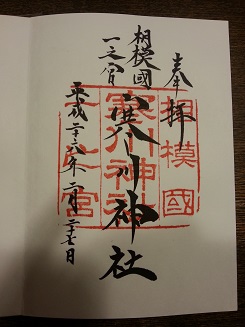 奉拝
相模國
一之宮
寒川神社
平成二十六年二月二十七日
相模國
寒川神社
一之宮